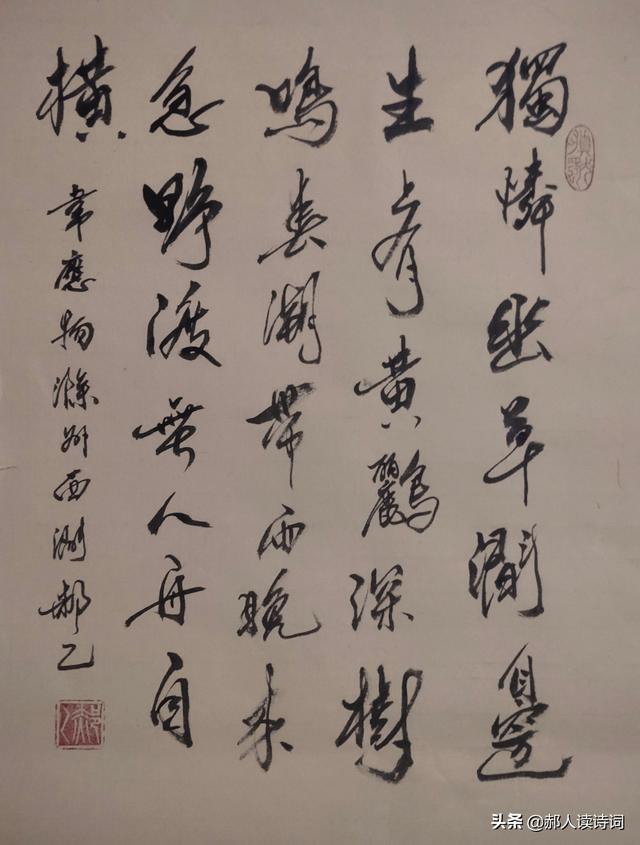 獨憐幽草澗邊
生上有黃鸝深樹
鳴春潮帶雨晚來
急野渡無人舟自
橫
韋應物滁州西澗郝乙
头条 @郝人读诗词